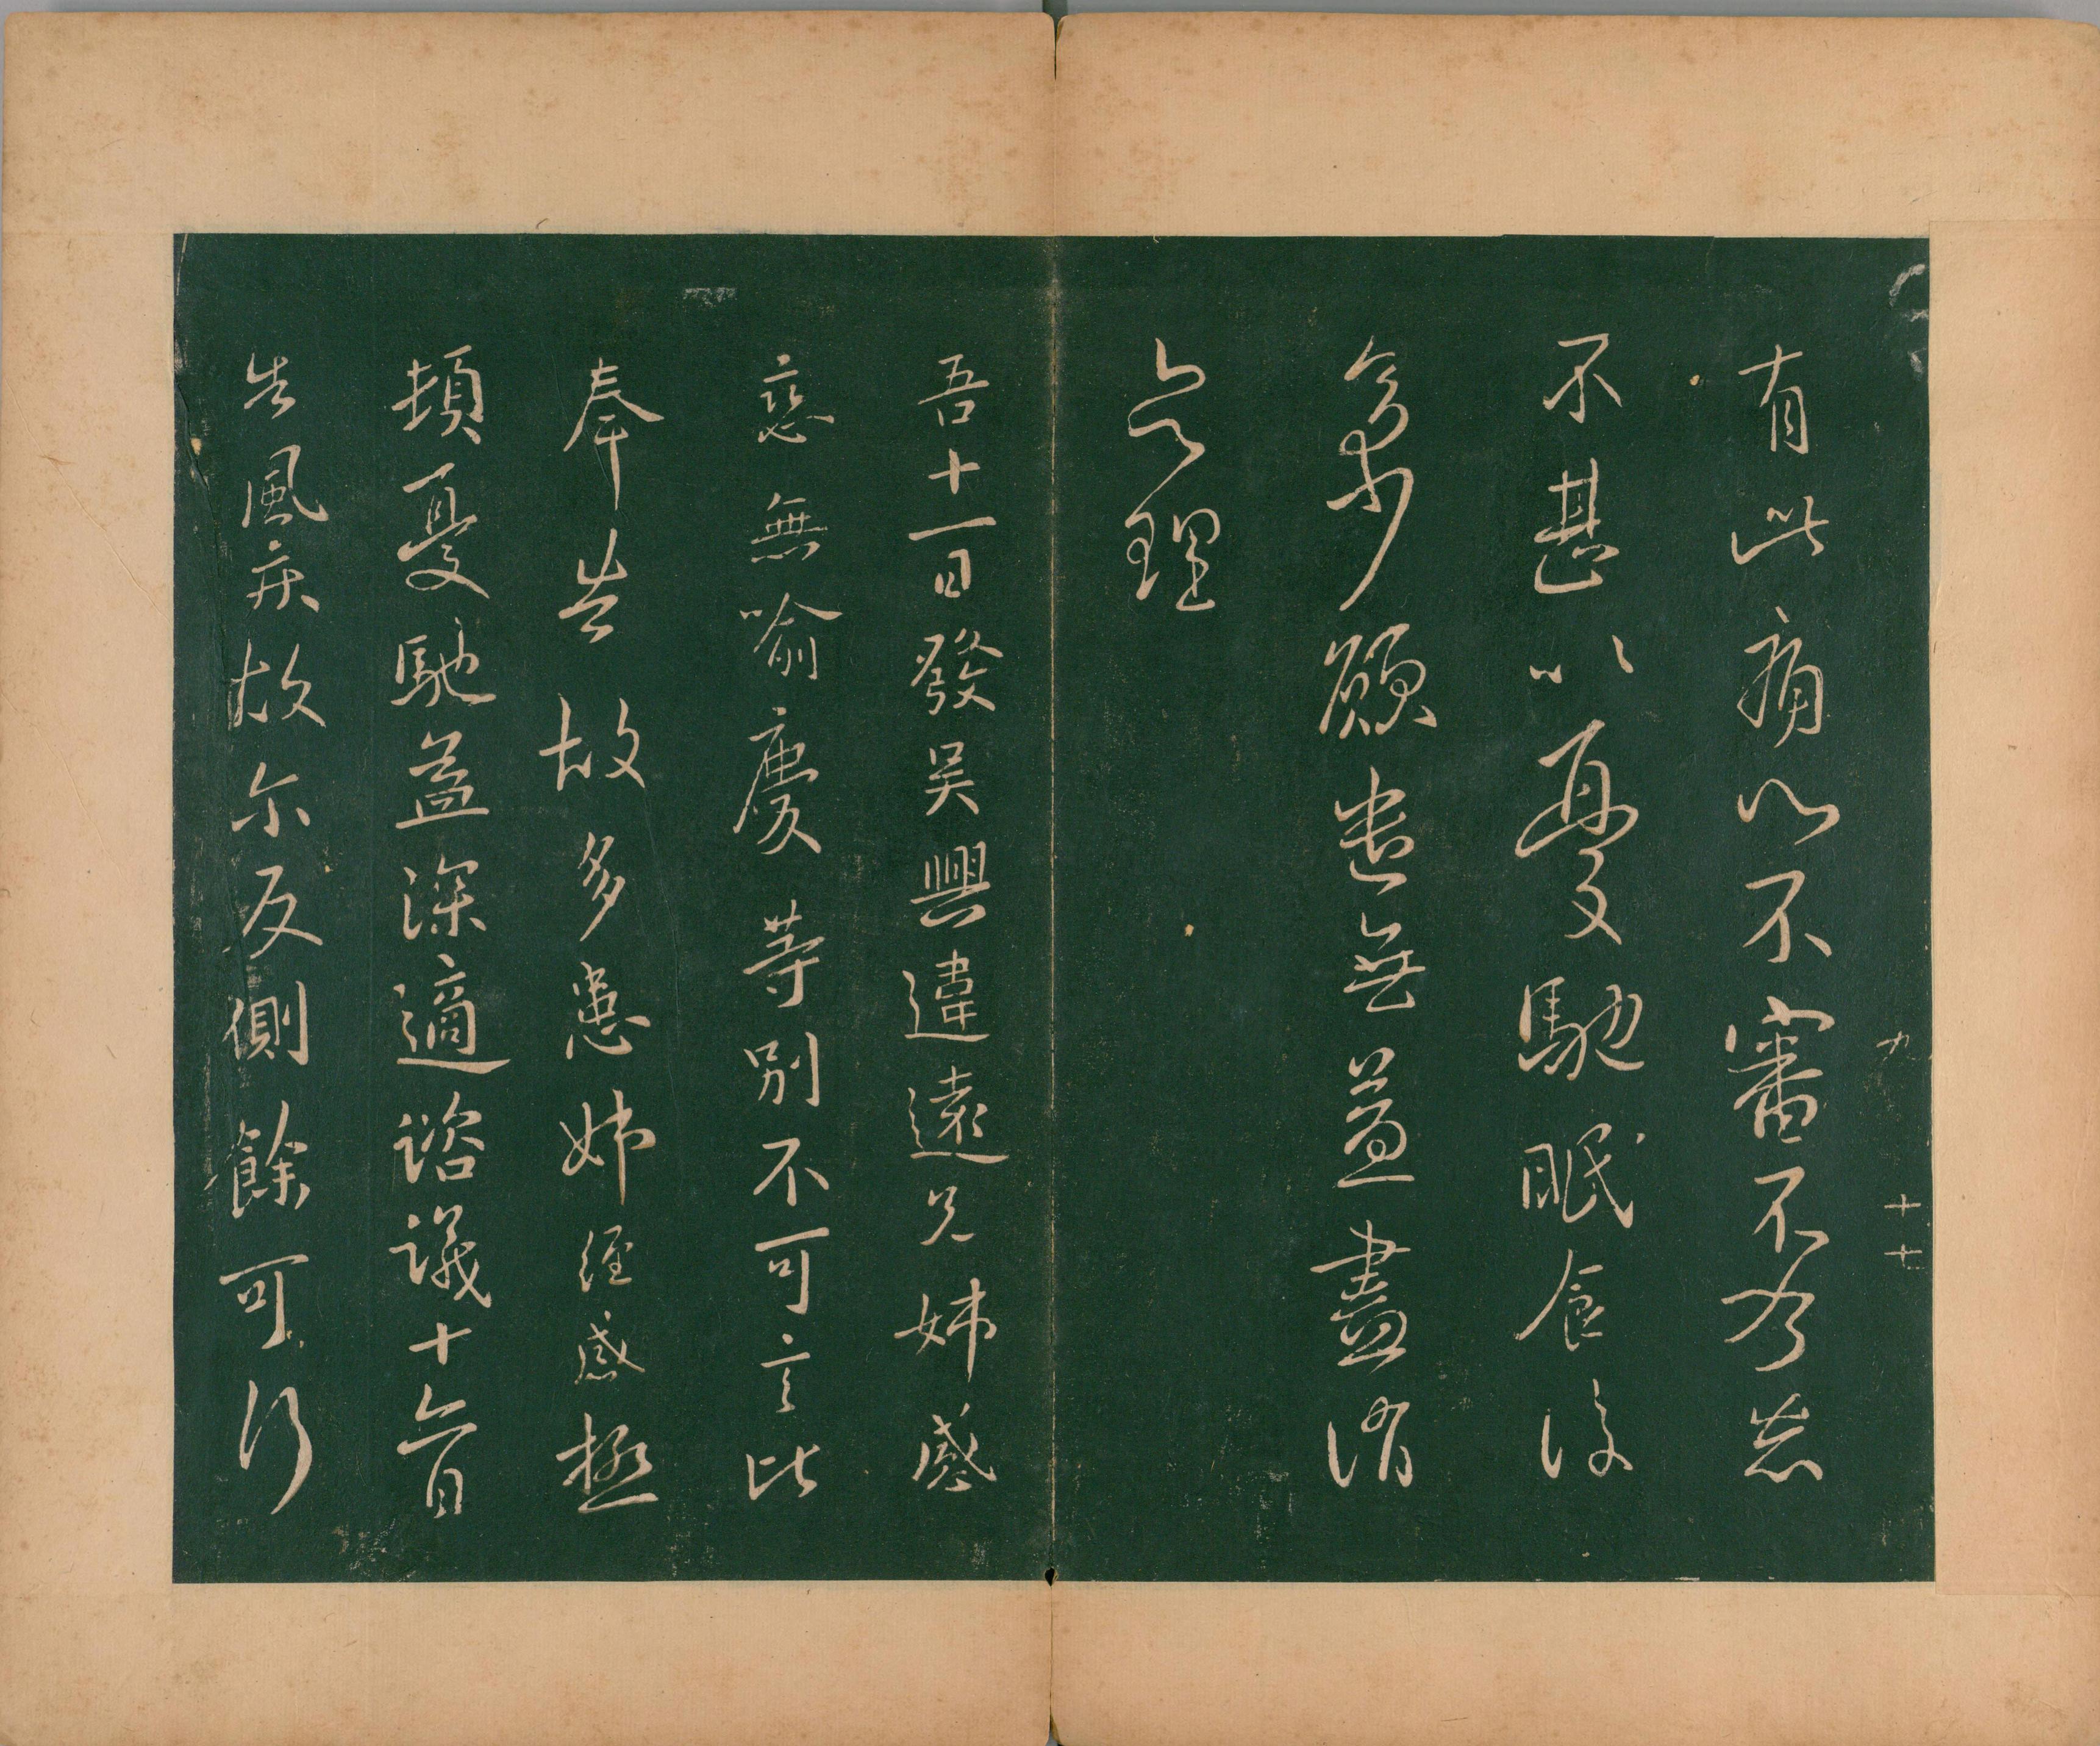 九
十七
有此痛以不審不爲患
不甚以憂馳眠食復
多少願患無益盡消
息理
吾十一日發吳興違遠兄姊感
戀無喻慶等別不可言比
奉告故多患姊經感極
頓憂馳益深適諮議十六日
告風疾故尔反側餘可行